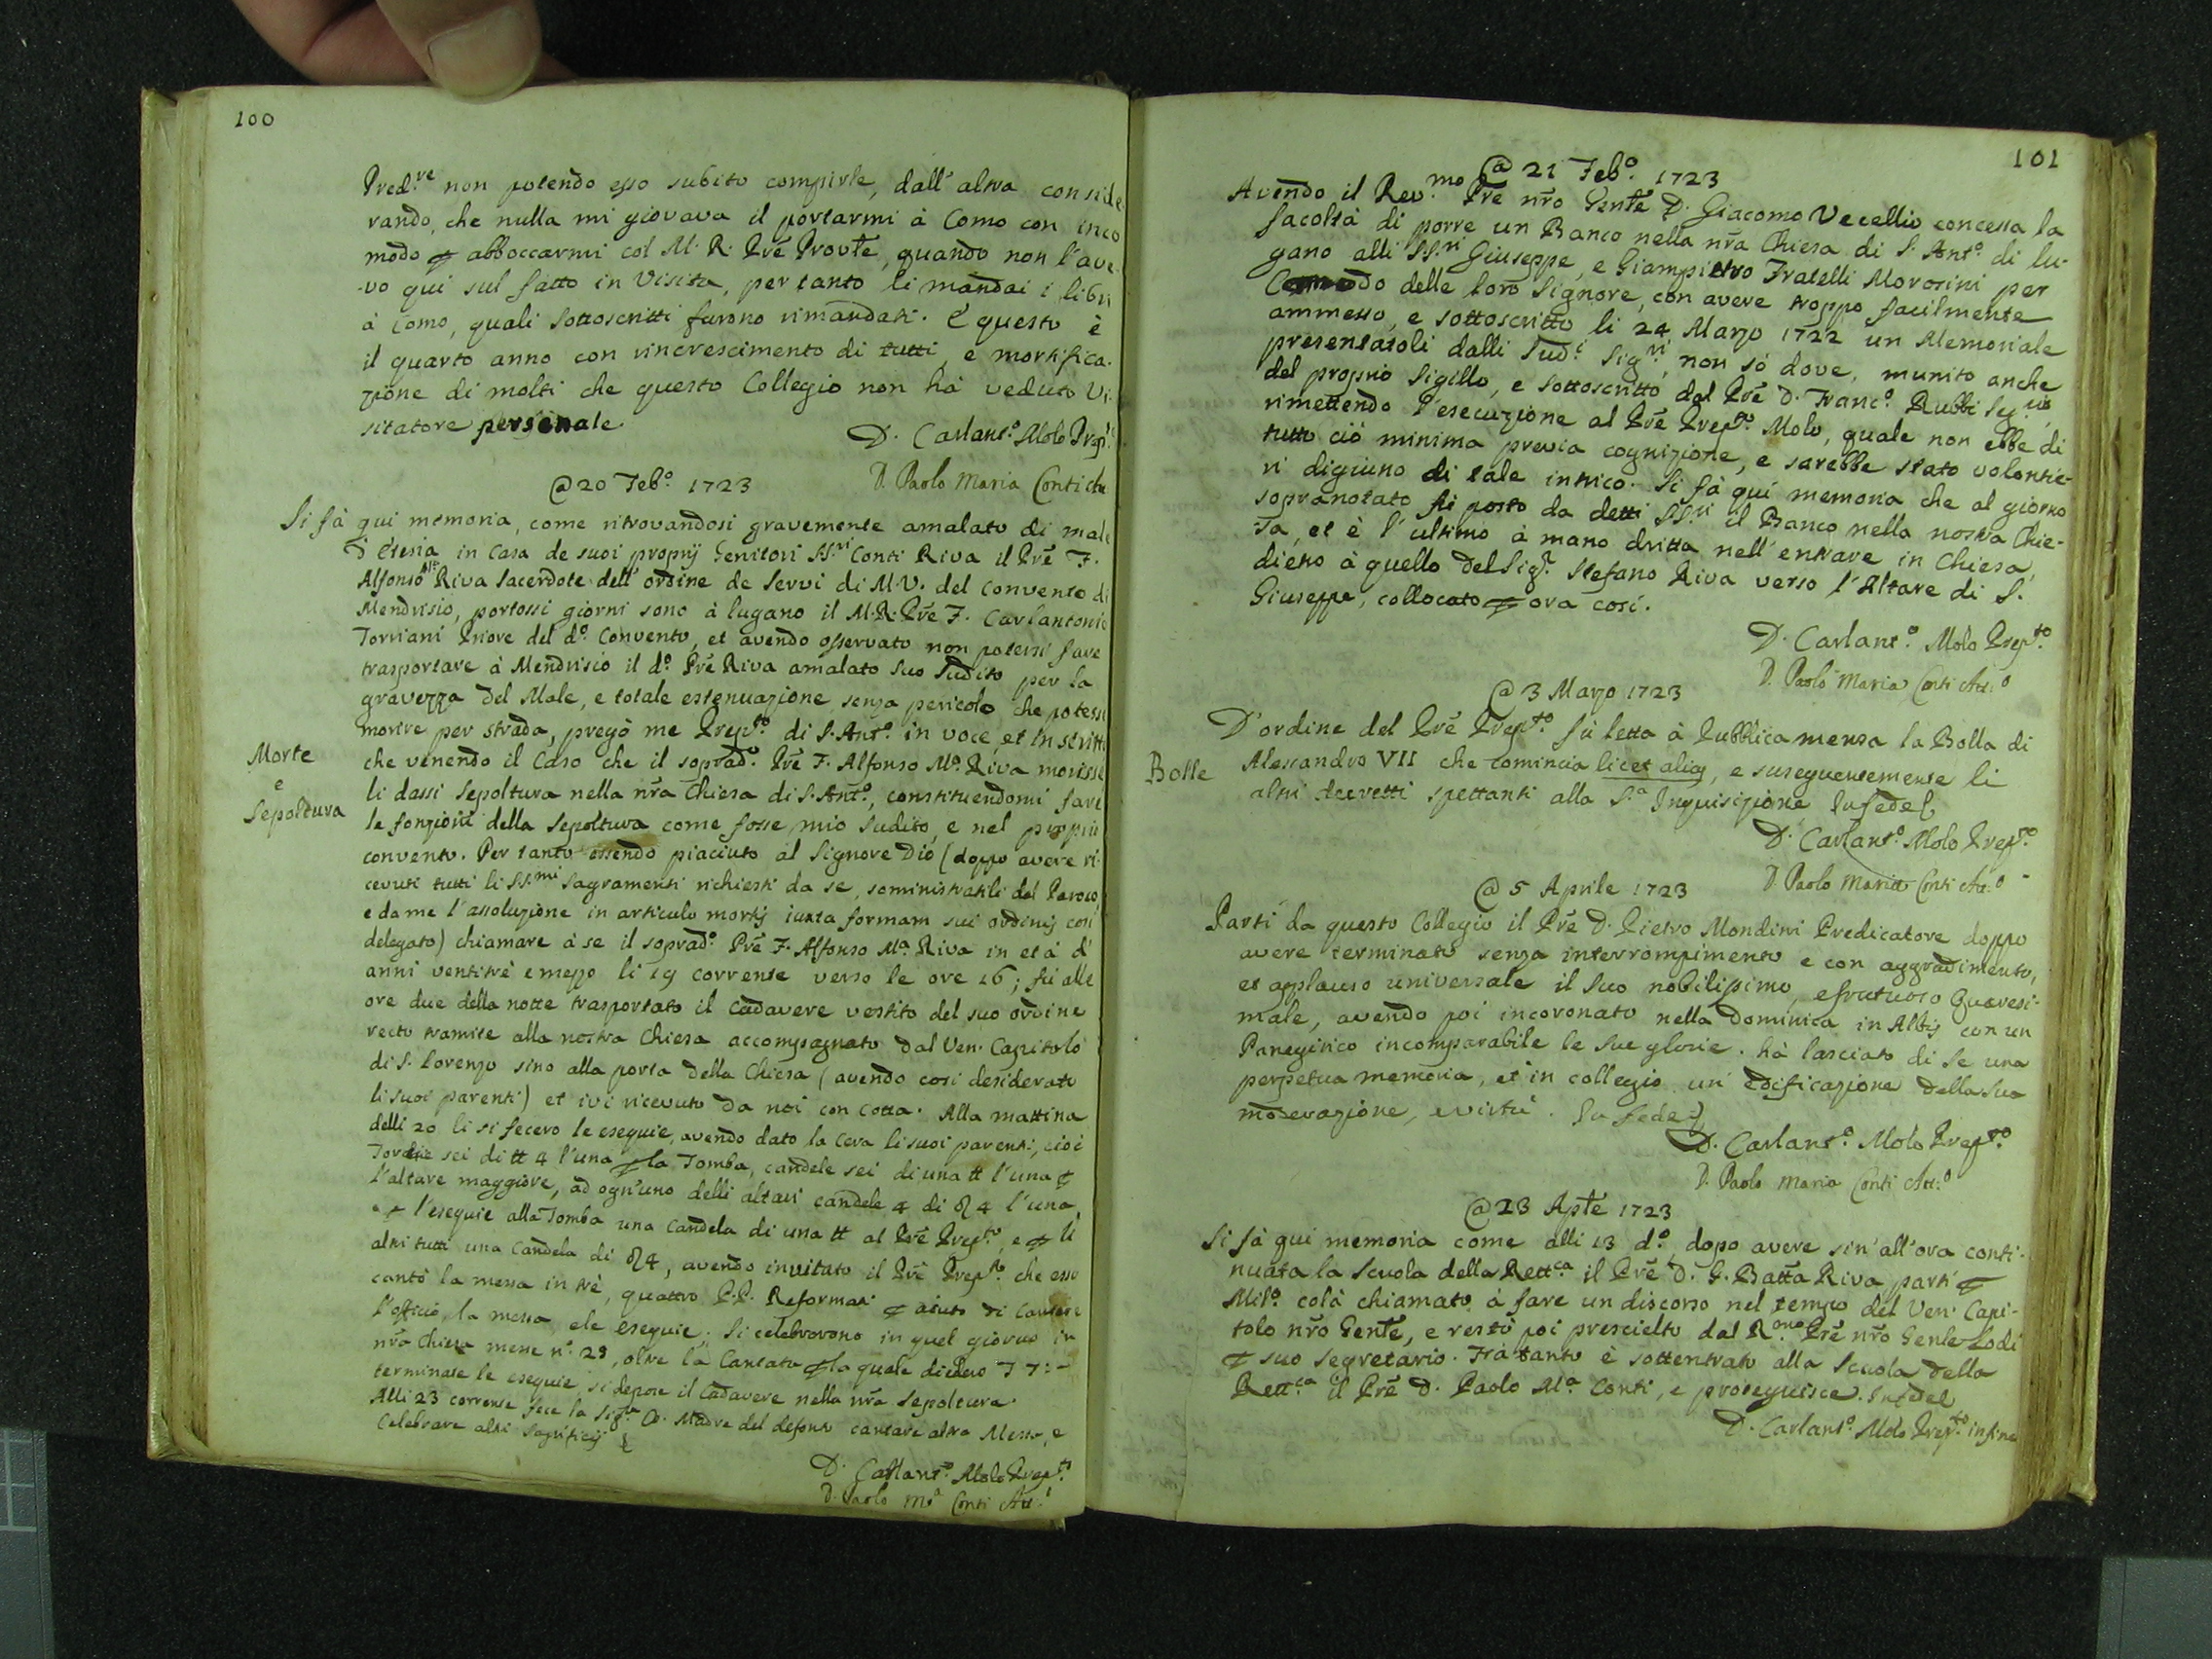 100
Pred.re non potendo esso subito compirle, dall'altra conside
rando, che nulla mi giovava il portarmi à Como con inco
modo abboccarmi col M. R. Prē Provle, quando non l'ave-
vo qui sul fatto in Visita, per tanto li mandai i libri
à Como, quali sottoscritti furono rimandati. E questo è
il quarto anno con rincrescimento di tutti, e mortifica-
zione di molti che questo Collegio non hà veduto Vi-
sitatore personale.
D. Carlant.o Molo Prep.
D. Paolo Maria Conti
@ 20 Feb.o 1723
Si fà qui memoria, come ritrovandosi gravemente amalato di male
d'Etesia in Casa de suoi proprij Genitori SS.ri Conti Riva il Prē F.
Alfonso M.a Riva Sacerdote dell'ordine de Servi di M.V. del Convento di
Mendrisio, portossi giorni sono à lugano il M.R. Prē F. Carlantonio
Torriani Priore del d.o Convento, et avendo osservato non potersi fare
trasportare à Mendrisio il d.o Prē Riva amalato suo sudito per la
gravezza del Male, e totale estenuazione senza pericolo che potesse
morire per strada, pregò me Prep.to di S. Ant.o in voce et in scritto
che venendo il Caso che il soprad.o Prē F. Alfonso M.a Riva morisse
li dassi Sepoltura nella nr̄a Chiesa di S. Ant.o, constituendomi fare
le fonzioni della Sepoltura come fosse mio sudito, e nel proprio
convento. Per tanto essendo piaciuto al Signore Dio (doppo avere ri-
cevuti tutti li SS.mi Sagramenti richiesti da se, soministratili dal Paroco,
e da me l'assoluzione in articulo mortis iuxta formam sui ordinis così
delegato) chiamare à se il soprad.o Prē F. Alfonso M.a Riva in età d'
anni ventitrè e mezzo li 19 corrente verso le ore 16; fù alle
ore due della notte trasportato il cadavere vestito del suo ordine
recto tramite alla nostra Chiesa accompagnato dal Ven. Capitolo
di S. Lorenzo sino alla porta della Chiesa (avendo così desiderato
li suoi parenti) et ivi ricevuto da noi con Cotta. Alla mattina
delli 20 li si fecero le esequie, avendo dato la Cera li suoi parenti, cioè
Torchie sei di ℔ 4 l'una la Tomba, candele sei di una ℔ l'una
l'altare maggiore, ad ogn'uno delli altari candele 4 di 4 l'una,
l'esequie alla Tomba una Candela di una ℔ al Prē Prep.to, e li
altri tutti una Candela di 4, avendo invitato il Prē Prep.to che esso
cantò la messa in trè, quattro P.P. Reformati aiuto di Cantare
l'officio, la messa, e le esequie; Si celebrorono in quel giorno in
nr̄a Chiesa messe n.o 29, oltre la Cantata la quale diedero 7:-
terminate le esequie si depose il Cadavere nella nr̄a Sepoltura.
Alli 23 corrente fece la Sig.ra Madre del defonto cantare altra Messa, e
celebrare altri Sagrificij
D. Carlant.o Molo Prep.to
D. Paolo M.a Conti Att.
Morte
e
Sepoltura
101
@ 21 Feb.o 1723
Avendo il Rev.mo Prē nr̄o Genle D. Giacomo Vecellio concessa la
facoltà di porre un Banco nella nr̄a Chiesa di S. Ant.o di lu-
gano alli SS.ri Giuseppe, e Giampietro Fratelli Morosini per
Comodo delle loro Signore, con avere troppo facilmente
ammesso, e sottoscritto li 24 Marzo 1722 un Memoriale
presentatoli dalli Sud.i Sig.ri, non sò dove, munito anche
del proprio sigillo, e sottoscritto dal Prē D. Franc.o Rubbi Seg.rio,
rimettendo l'esecuzione al Prē Prep.to Molo, quale non ebbe di
tutto ciò minima previa cognizione, e sarebbe stato volontie-
ri digiuno di tale intrico. Si fà quì memoria che al giorno
sopranotato fù posto da detti SS.ri il Banco nella nostra Chie-
sa, et è l'ultimo à mano dritta nell'entrare in Chiesa,
dietro à quello del Sig.r Stefano Riva verso l'Altare di S.
Giuseppe, collocato ora così.
D. Carlant.o Molo Prep.to
D. Paolo Maria Conti Att.o
@ 3 Marzo 1723
D'ordine del Prē Prep.to fù letta à Pubblica mensa la Bolla di
Alessandro VII che comincia licet alias, e susseguentemente li
altri decretti spettanti alla S.a Inquisizione In fede
D. Carlant.o Molo Prep.to
D. Paolo Maria Conti Att.o
Bolle
@ 5 Aprile 1723
Partì da questo Collegio il Prē D. Pietro Mondini Predicatore doppo
avere terminato senza interrompimento e con aggradimento,
et applauso universale il suo nobilissimo, e frutuoso Quaresi-
male, avendo poi incoronato nella Dominica in Albis con un
Panegirico incomparabile le sue glorie. hà lasciato di se una
perpetua memoria, et in collegio un'edificazione della sua
moderazione, e virtù. In fede
D. Carlant.o Molo Prep.to
D. Paolo Maria Conti Att.o
@ 23 Aple 1723
Si fà qui memoria come alli 13 d.o, dopo avere sin'all'ora conti-
nuata la Scuola della Rett.ca il Prē D. G. Batt̄a Riva partì
Mil.o colà chiamato à fare un discorso nel tempo del Ven. Capi-
tolo nr̄o Genle, e restò poi prescielto dal R.mo Prē nr̄o Genle Lodi
suo Segretario. Frà tanto è sottentrato alla Scuola della
Rett.ca il Prē D. Paolo M.a Conti, e proseguisce. In fede
D. Carlant.o Molo Prep.to in fine